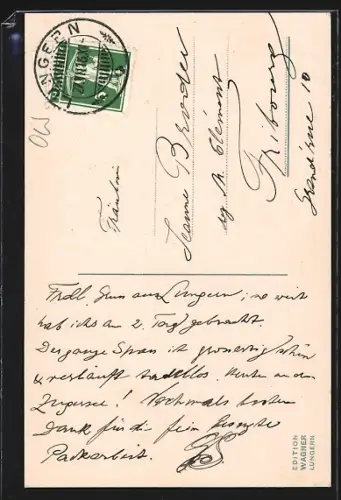 LUNGERN
OW
Fräulein
Jeanne
Fribourg
10
Frdl. Gruss aus Lungern; so weit
hab ichs am 2. Tag gebracht.
Der ganze Spass ist grossartig schön
& verläuft tadellos. Heute an den
Zugersee! Nochmals besten
Dank für die fein besorgte
Packarbeit.
EDITION
WAGNER
LUNGERN